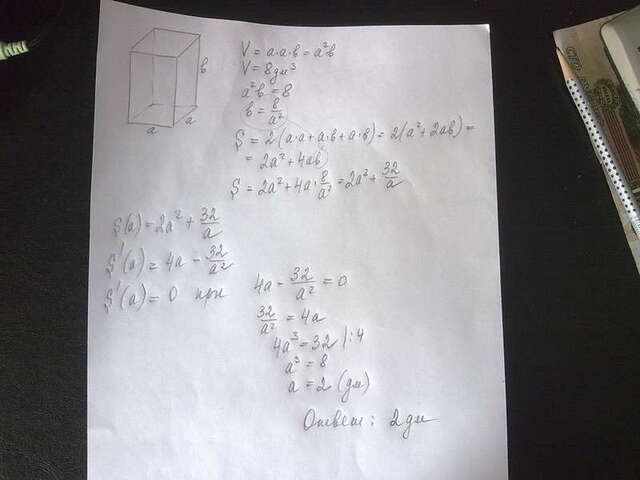 b
a
a
V = a·a·b = a²b
V = 8дм³
a²b = 8
b = 8/a²
S = 2(a·a + a·b + a·b) = 2(a² + 2ab) =
= 2a² + 4ab
S = 2a² + 4a · 8/a² = 2a² + 32/a
S(a) = 2a² + 32/a
S'(a) = 4a - 32/a²
S'(a) = 0 при
4a - 32/a² = 0
32/a² = 4a
4a³ = 32 |:4
a³ = 8
a = 2 (дм)
Ответ: 2дм